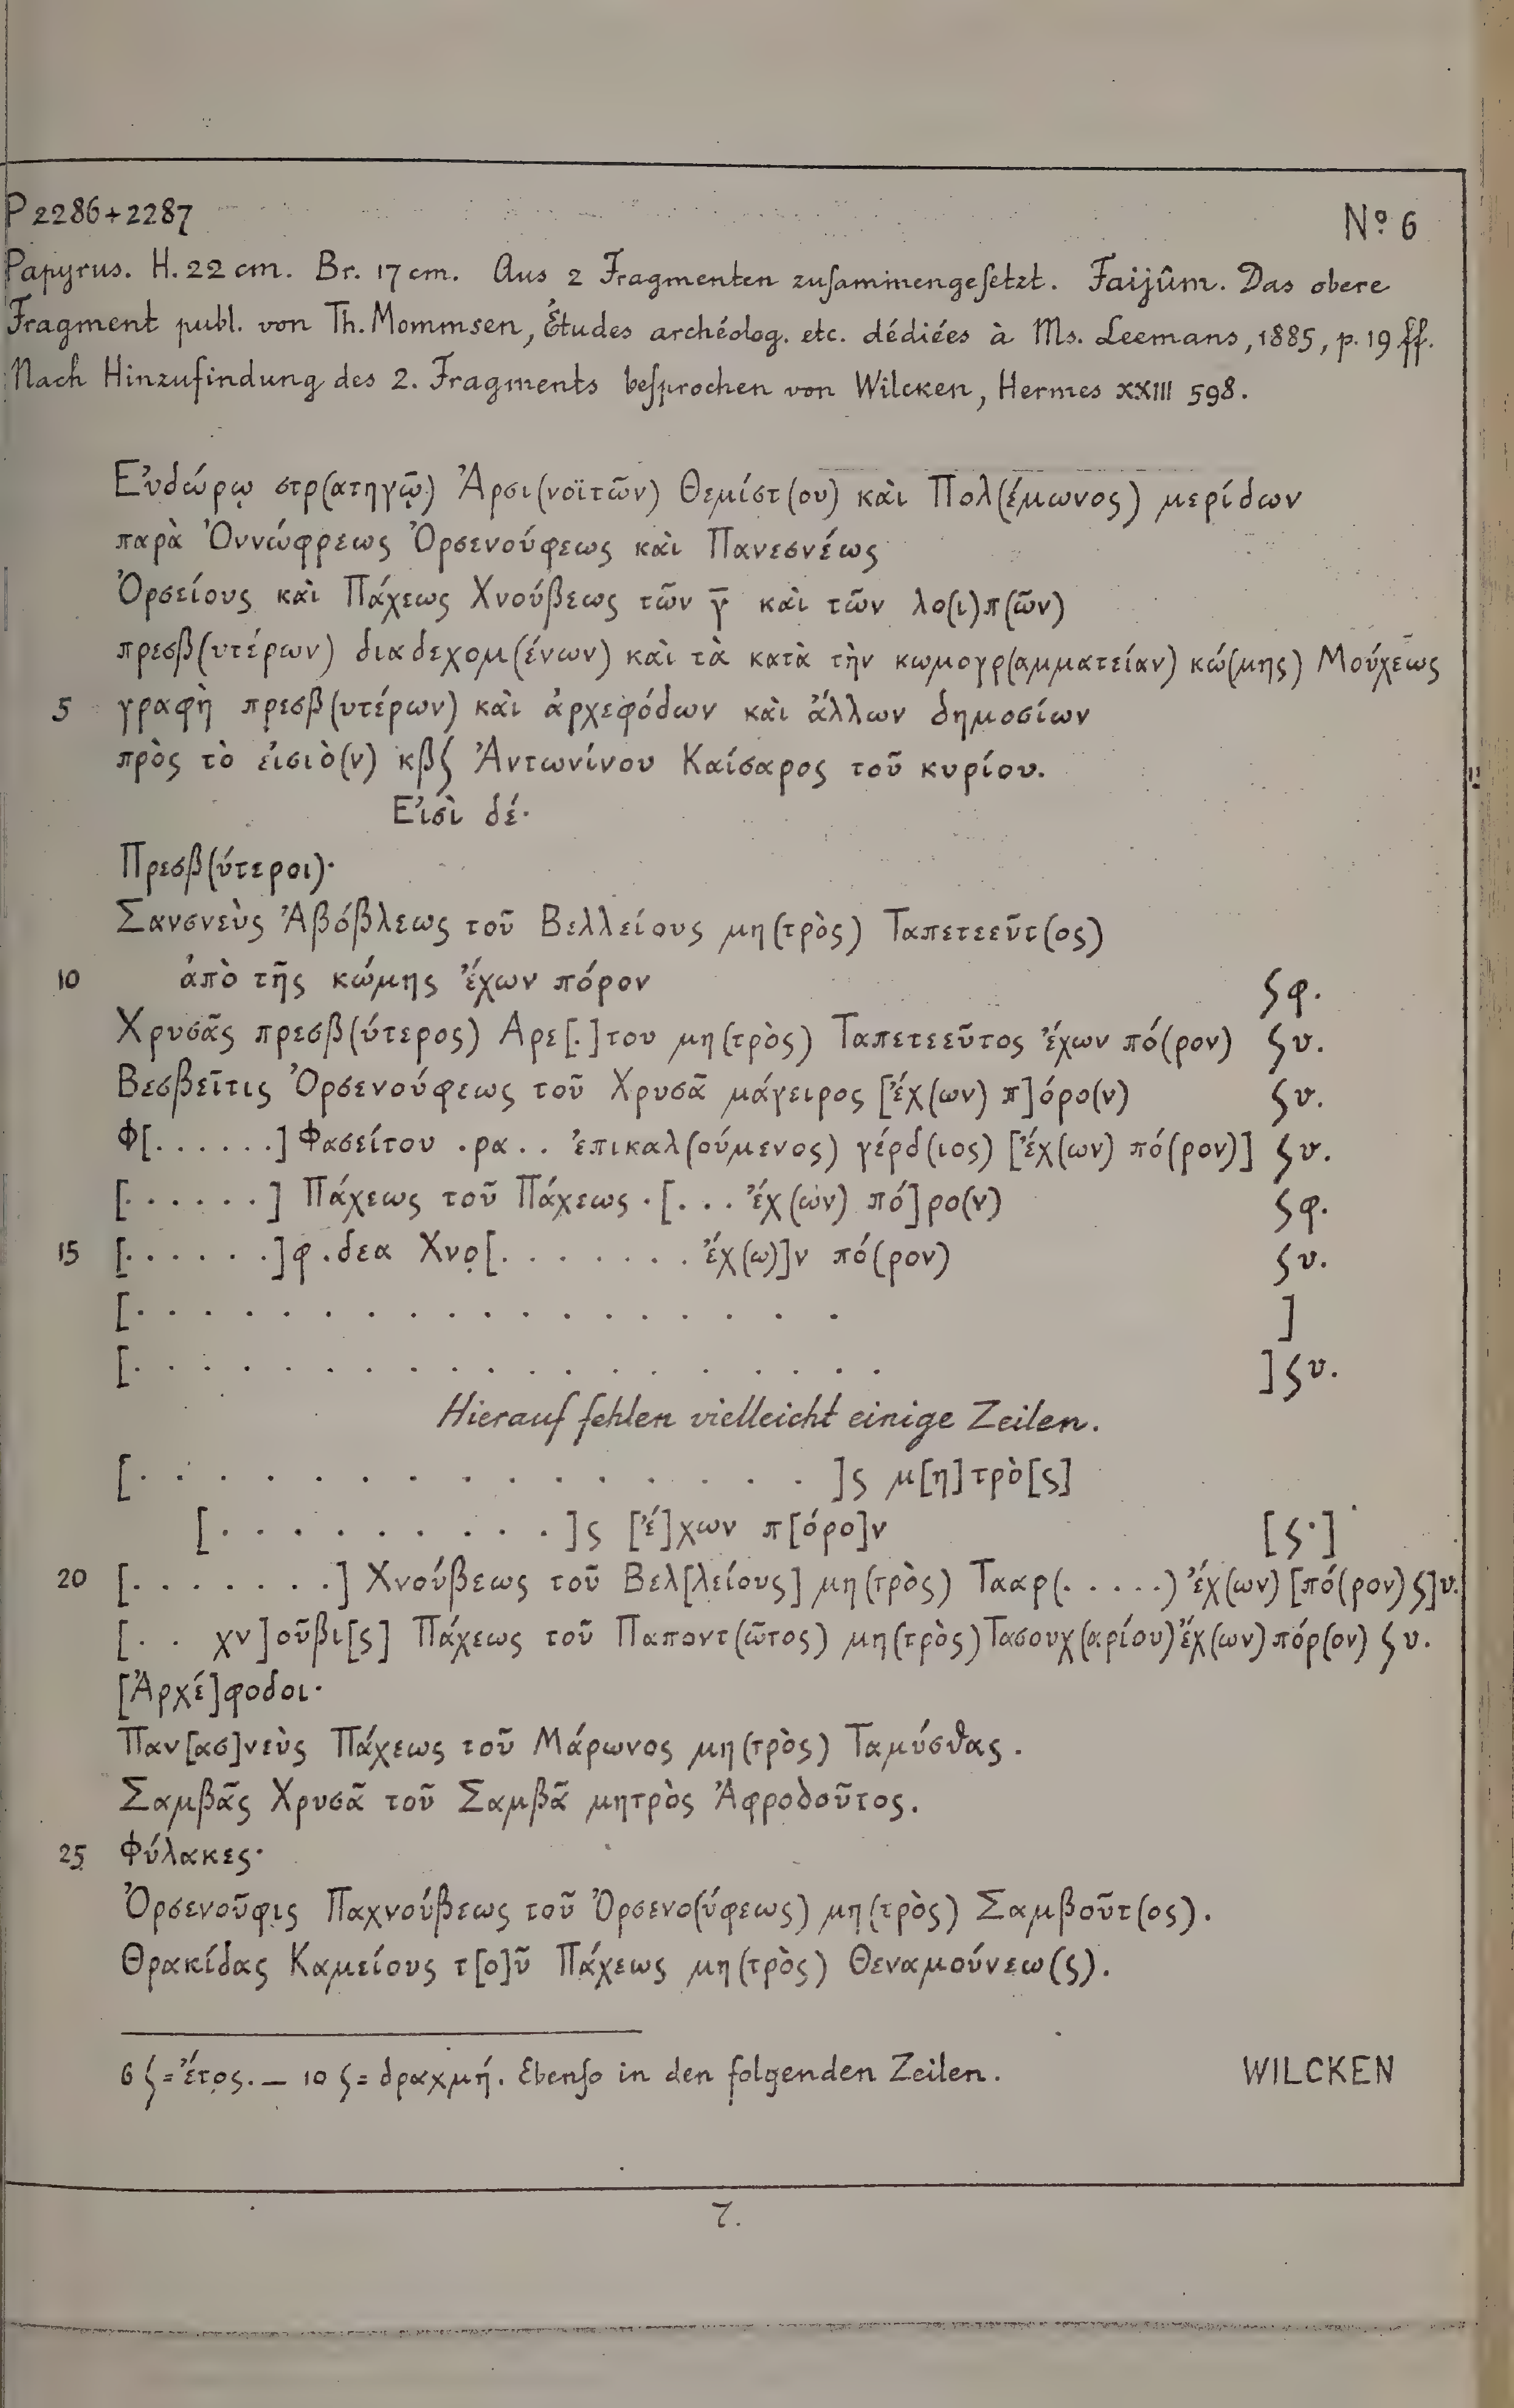 P 2286+2287
Nº 6
Papyrus. H. 22 cm. Br. 17 cm. Aus 2 Fragmenten zusammengesetzt. Faijûm. Das obere
Fragment publ. von Th. Mommsen, Études archéolog. etc. dédiées à Ms. Leemans, 1885, p. 19 ff.
Nach Hinzufindung des 2. Fragments besprochen von Wilcken, Hermes XXIII 598.
Εὐδώρῳ στρ(ατηγῷ) Ἀρσι(νοϊτῶν) Θεμίστ(ου) καὶ Πολ(έμωνος) μερίδων
παρὰ Ὀννώφρεως Ὀρσενούφεως καὶ Πανεσνέως
Ὀρσείους καὶ Πάχεως Χνούβεως τῶν γ̅ καὶ τῶν λο(ι)π(ῶν)
πρεσβ(υτέρων) διαδεχομ(ένων) καὶ τὰ κατὰ τὴν κωμογρ(αμματείαν) κώ(μης) Μούχεως
5 γραφὴ πρεσβ(υτέρων) καὶ ἀρχεφόδων καὶ ἄλλων δημοσίων
πρὸς τὸ εἰσιὸ(ν) κβϛ Ἀντωνίνου Καίσαρος τοῦ κυρίου.
Εἰσὶ δέ·
Πρεσβ(ύτεροι)·
Σανσνεὺς Ἀβόβλεως τοῦ Βελλείους μη(τρὸς) Ταπετεεῦτ(ος)
10 ἀπὸ τῆς κώμης ἔχων πόρον ϛφ.
Χρυσᾶς πρεσβ(ύτερος) Αρε[.]του μη(τρὸς) Ταπετεεῦτος ἔχων πό(ρον) ϛυ.
Βεσβεῖτις Ὀρσενούφεως τοῦ Χρυσᾶ μάγειρος [ἔχ(ων) π]όρο(ν) ϛυ.
Φ[. . . . . .] Φασείτου .ρα.. ἐπικαλ(ούμενος) γέρδ(ιος) [ἔχ(ων) πό(ρον)] ϛυ.
[. . . . . .] Πάχεως τοῦ Πάχεως .[. . . ἔχ(ων) πό]ρο(ν) ϛφ.
15 [. . . . . . .]φ.δεα Χνο̣[. . . . . . . . ἔχ(ω)]ν πό(ρον) ϛυ.
[. . . . . . . . . . . . . . . . . ]
[. . . . . . . . . . . . . . . . . ]ϛυ.
Hierauf fehlen vielleicht einige Zeilen.
[. . . . . . . . . . . . . . . . ]ς μ[η]τρὸ[ς]
[. . . . . . . . . . ]ς [ἔ]χων π[όρο]ν [ϛ·]
20 [. . . . . . . .] Χνούβεως τοῦ Βελ[λείους] μη(τρὸς) Τααρ(. . . . .) ἔχ(ων) [πό(ρον) ϛ]υ.
[. . χν]οῦβι[ς] Πάχεως τοῦ Παποντ(ῶτος) μη(τρὸς) Τασουχ(αρίου) ἔχ(ων) πόρ(ον) ϛυ.
[Ἀρχέ]φοδοι·
Παν[ασ]νεὺς Πάχεως τοῦ Μάρωνος μη(τρὸς) Ταμύσθας.
Σαμβᾶς Χρυσᾶ τοῦ Σαμβᾶ μητρὸς Ἀφροδοῦτος.
25 Φύλακες·
Ὀρσενοῦφις Παχνούβεως τοῦ Ὀρσενο(ύφεως) μη(τρὸς) Σαμβοῦτ(ος).
Θρακίδας Καμείους τ[ο]ῦ Πάχεως μη(τρὸς) Θεναμούνεω(ς).
6 ϛ = ἔτος. — 10 ϛ = δραχμή. Ebenso in den folgenden Zeilen.
WILCKEN
7.